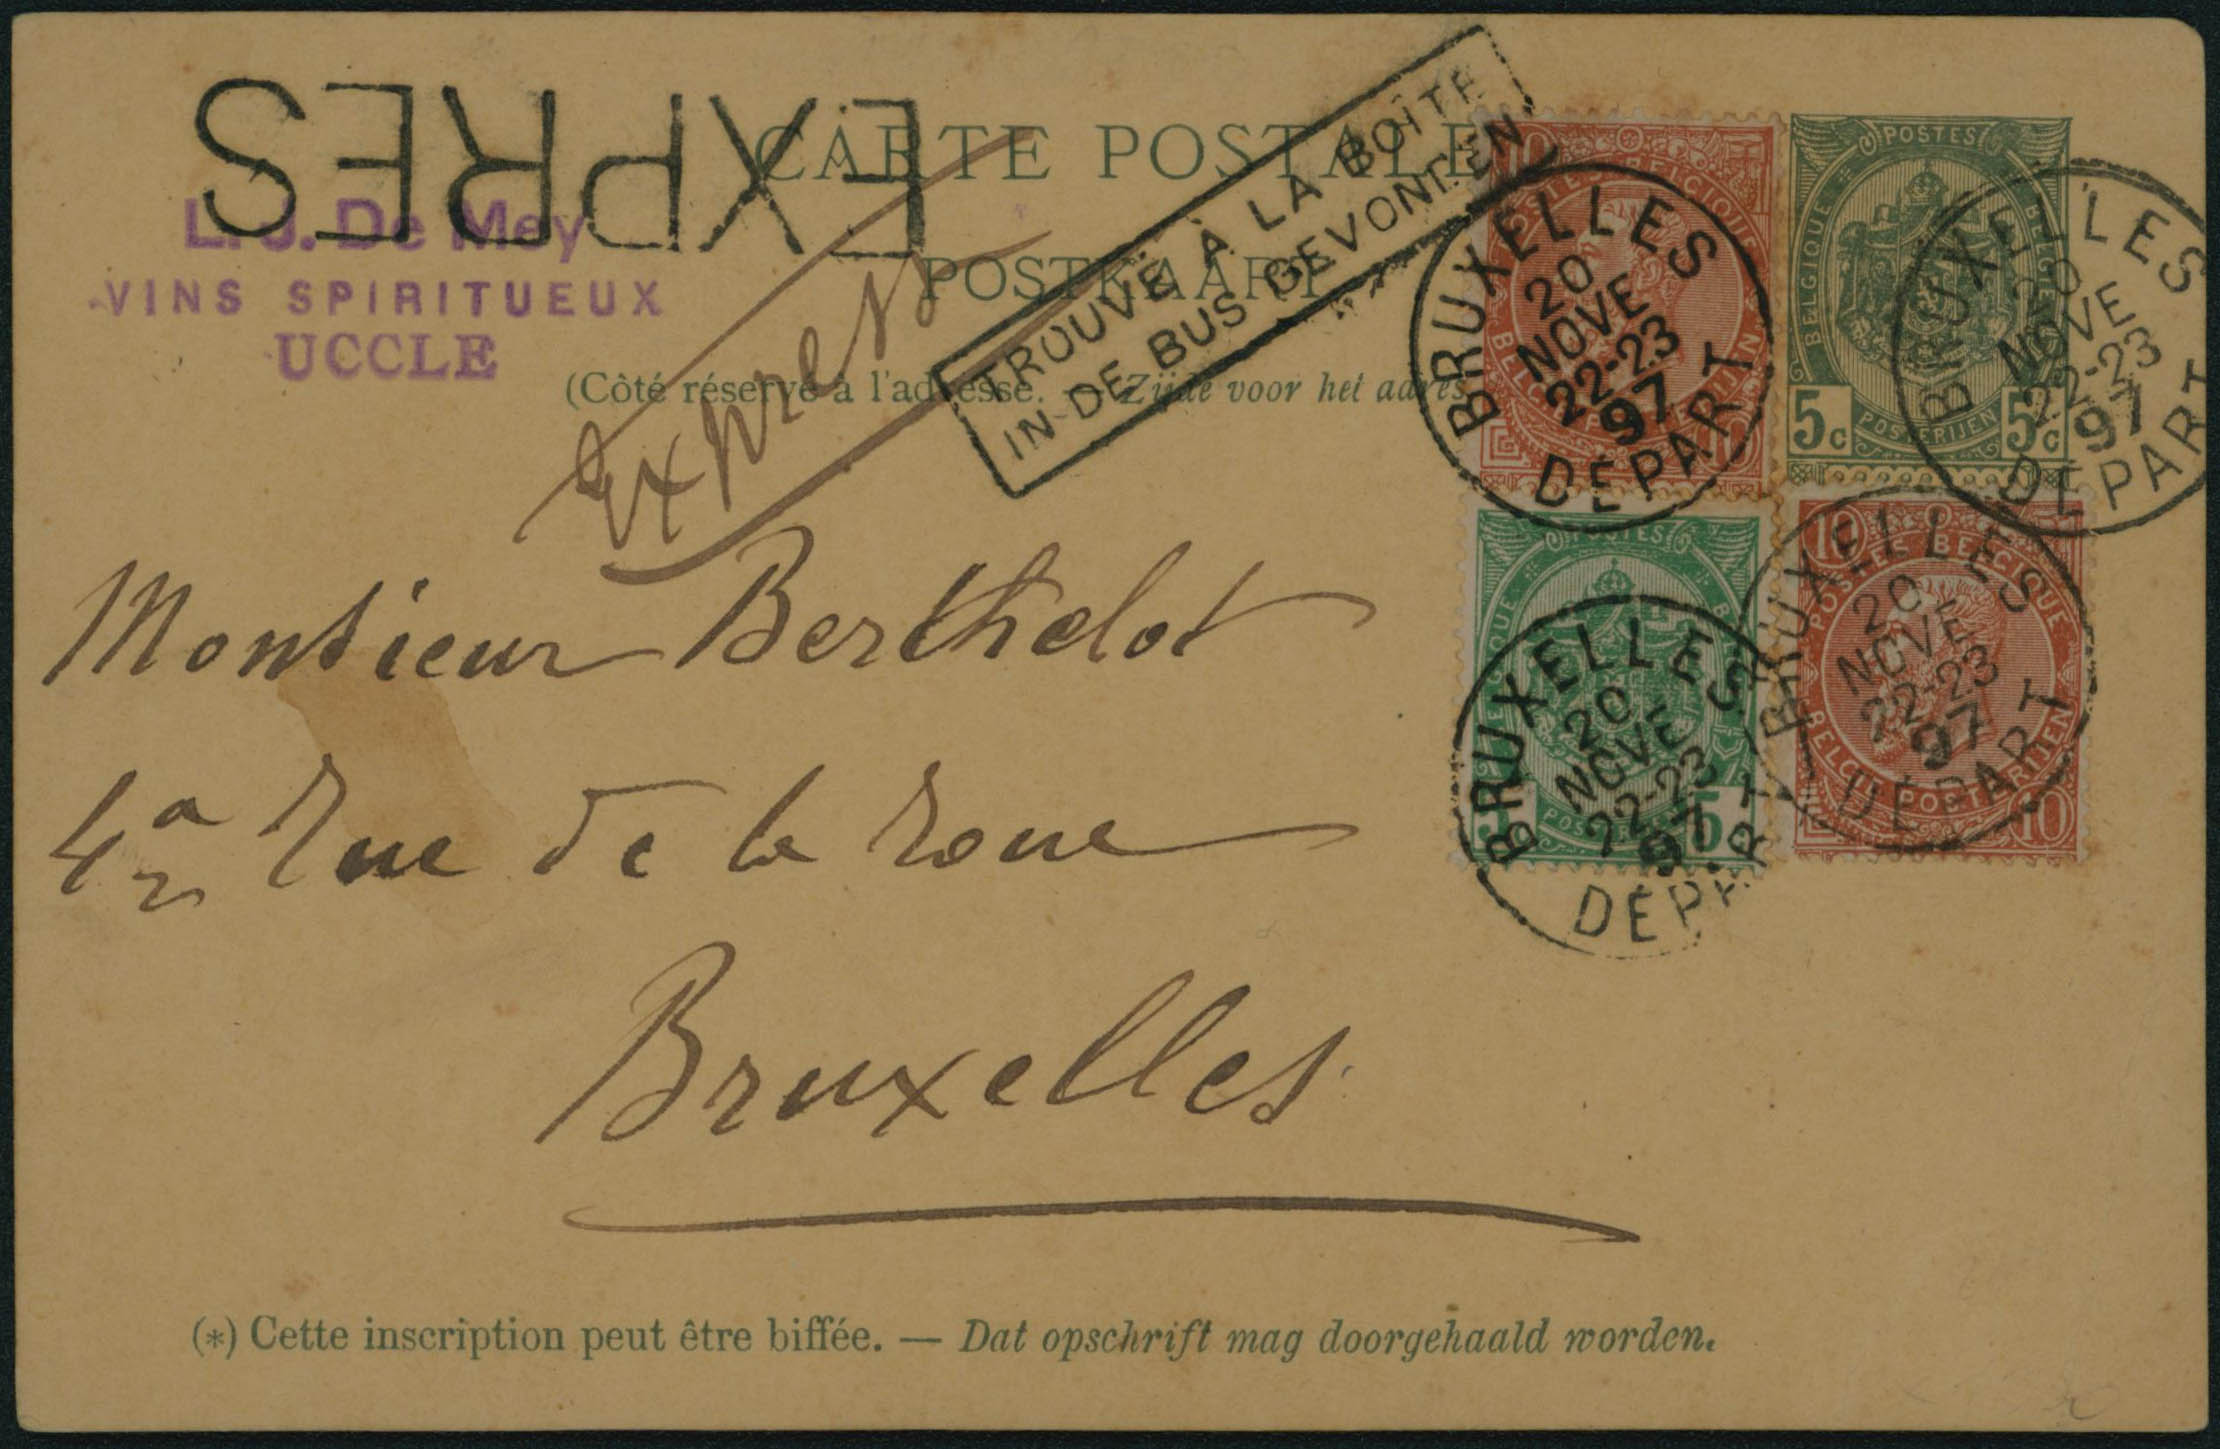 EXPRES
CARTE POSTALE
L. J. De Mey
VINS SPIRITUEUX
UCCLE
POSTKAART
TROUVÉ À LA BOÎTE
IN DE BUS GEVONDEN
(Côté réservé à l'adresse. — Zijde voor het adres
Express
Monsieur Berthelot
4a rue de la roue
Bruxelles
10
POSTES BELGIQUE
BELGIE POSTERIJEN
10
POSTES
BELGIQUE
BELGIE
5c
POSTERIJEN
5c
BRUXELLES
20
NOVE
22-23
97
DÉPART
BRUXELLES
20
NOVE
22-23
97
DÉPART
POSTES
5
POSTERIJEN
10
POSTES BELGIQUE
BELGIE POSTERIJEN
10
BRUXELLES
20
NOVE
22-23
97
DÉPART
BRUXELLES
20
NOVE
22-23
97
DÉPART
(*) Cette inscription peut être biffée. — Dat opschrift mag doorgehaald worden.